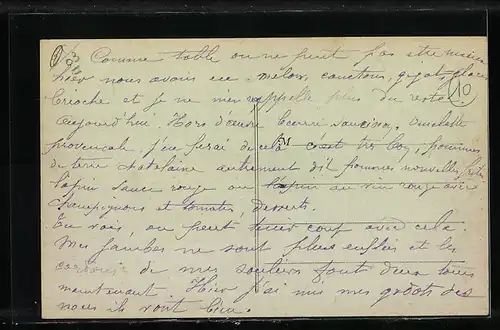 Comme table on ne peut pas etre mieux
hier nous avons eu melon, canetons, gigot, glace
brioche et je ne me rappelle plus du reste
aujourd'hui. Hors d'œuvre beurre saucisson, omelette
provencale, j'en ferai de cela c'est très bon, pommes
de terre chatelaine autrement dit pommes nouvelles frites
lapin sauce rouge ou lapin au vin rouge avec
champignons et tomates, desserts.
Tu vois, on peut tenir coup avec cela.
Mes jambes ne sont plus enflés et les
de mes souliers font deux tours
maintenant Hier j'ai mis mes
noeus ils vont bien.
10